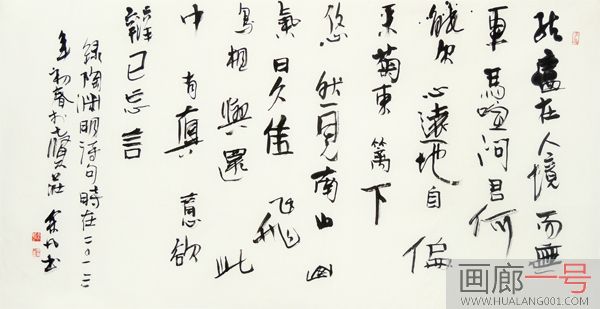 结廬在人境而無
車馬喧问君何
能尔心遠地自偏
采菊東篱下
悠然見南山山
氣日夕佳飛
鸟相與還此
中有真意欲
辩已忘言
録陶渊明诗句時在二〇一二
年初春於莊书
画廊一号
WWW.HUALANG001.COM